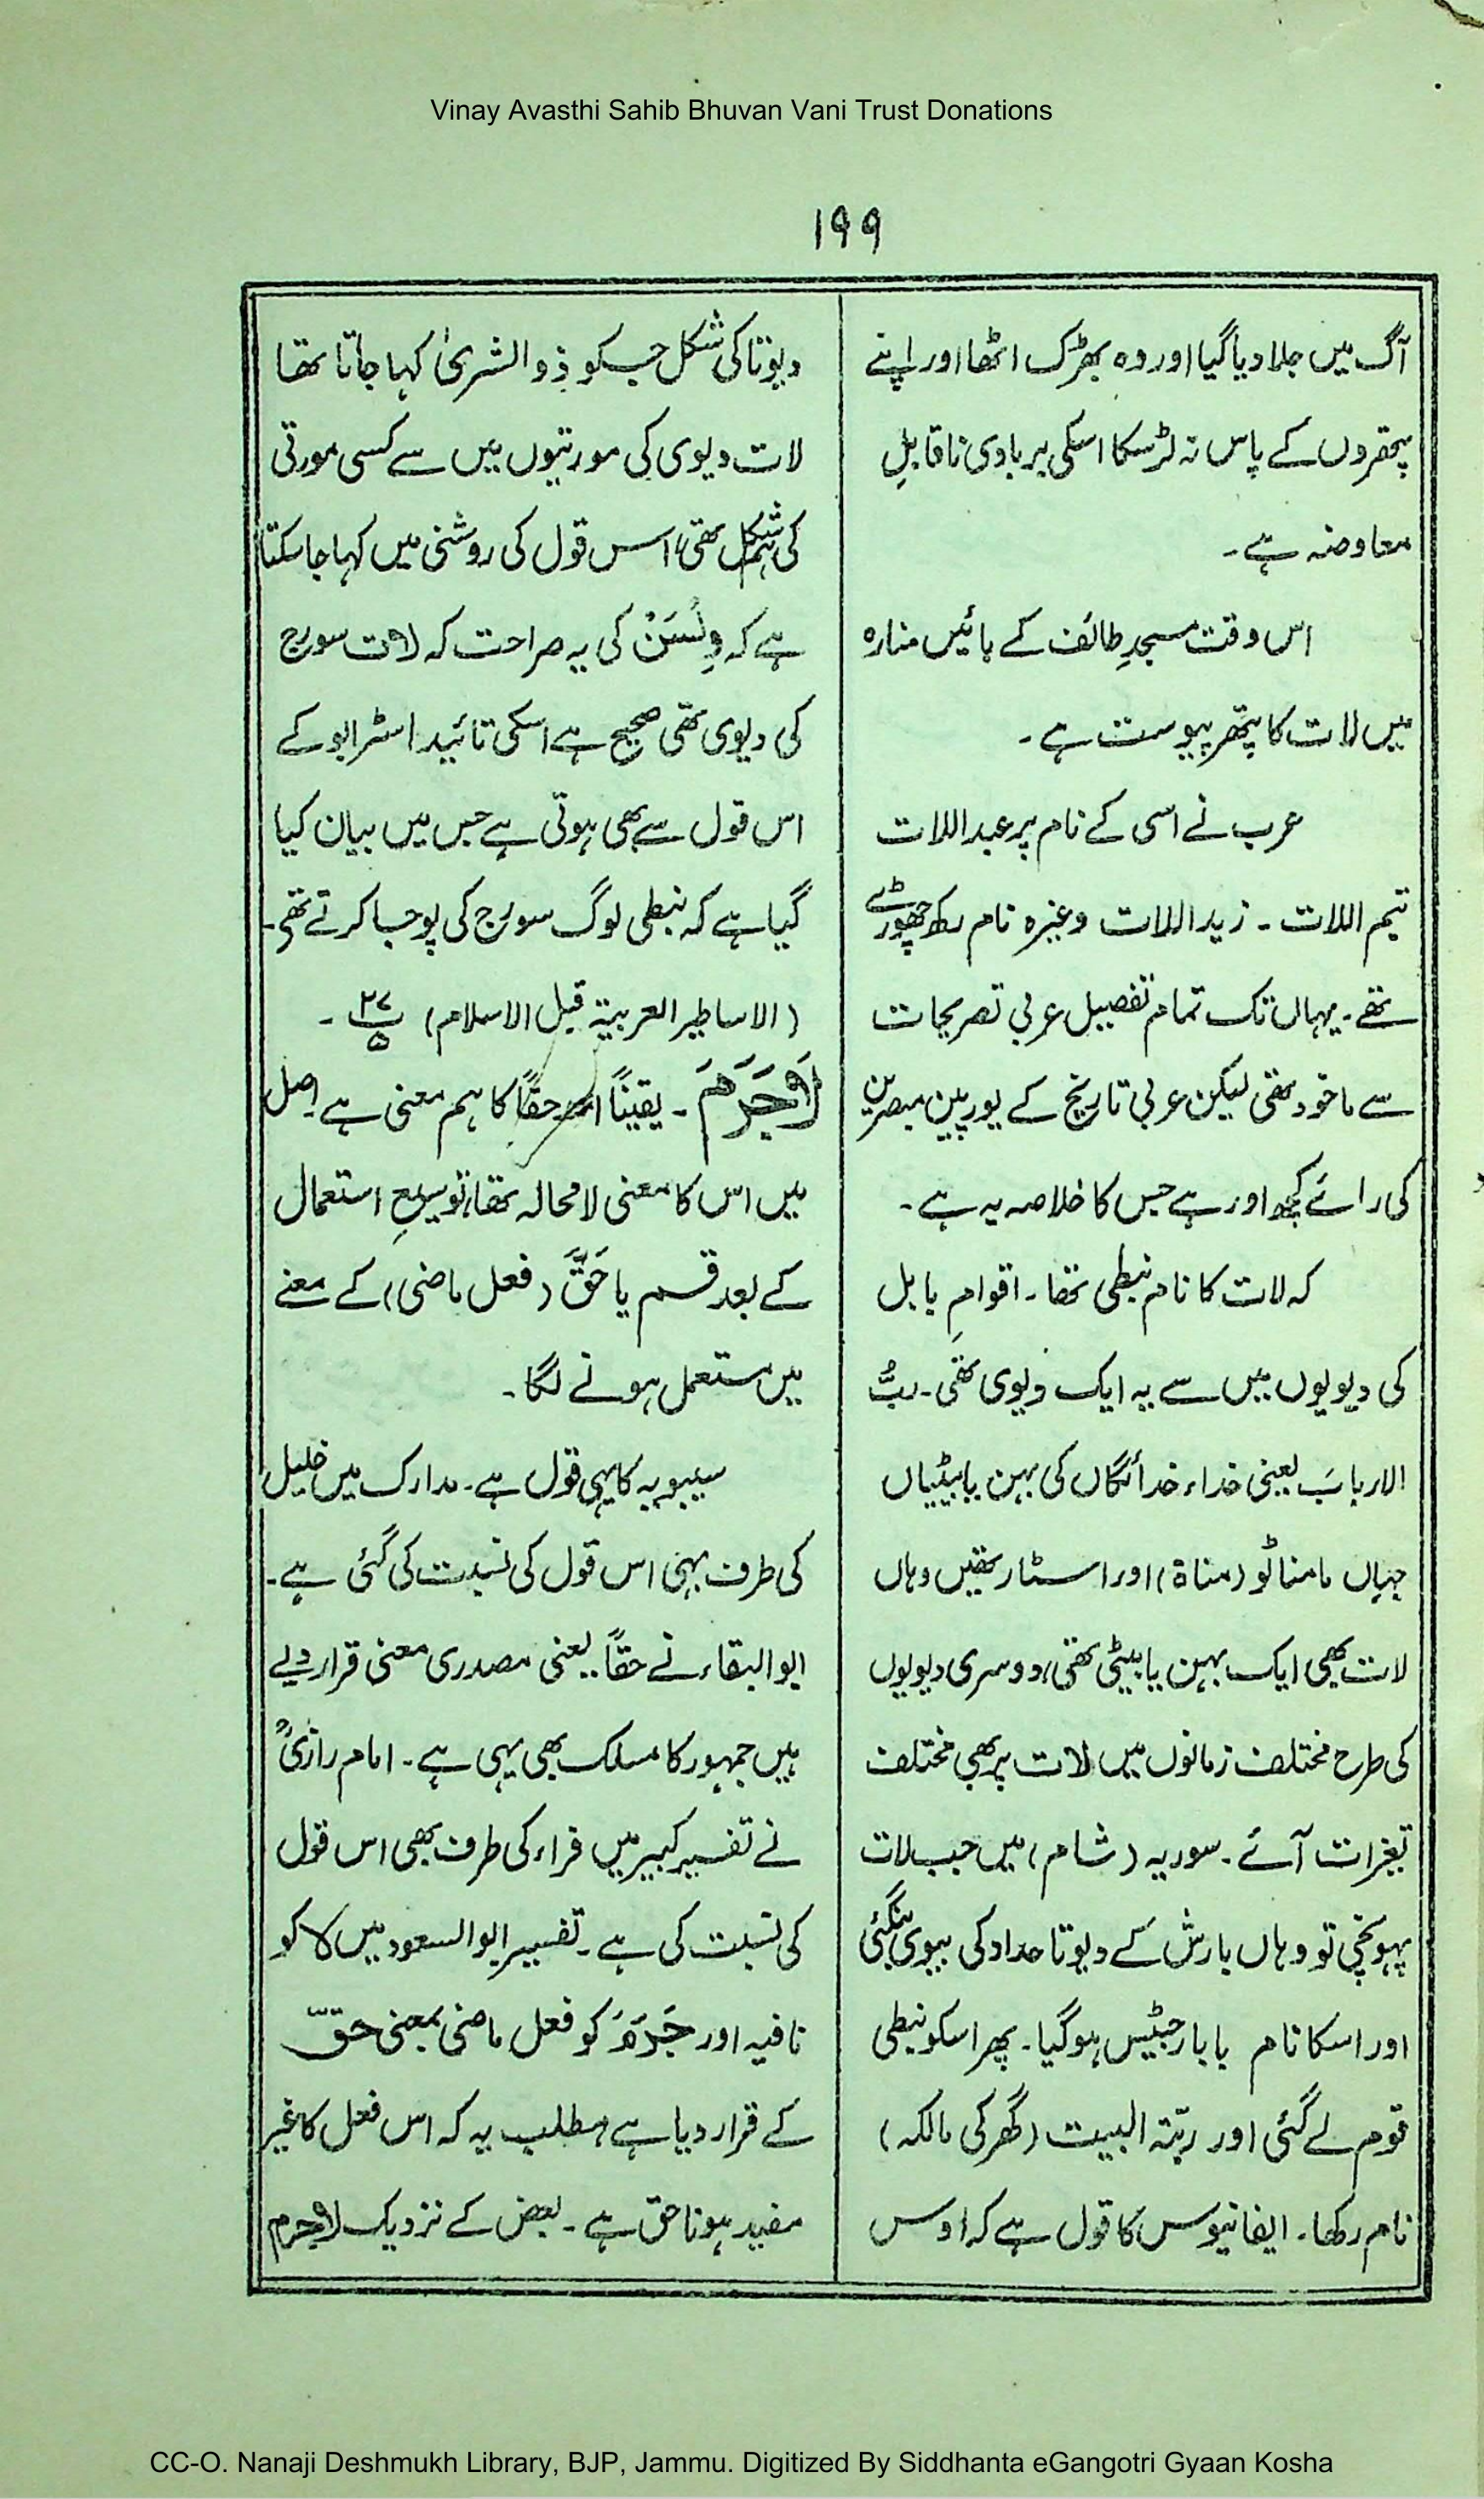 Vinay Avasthi Sahib Bhuvan Vani Trust Donations
۱۹۹
آگ میں جلا دیا گیا اور وہ بھڑک اٹھا اور اپنے
پتھروں کے پاس نہ لڑ سکا اسکی بربادی ناقابلِ
معاوضہ ہے۔
اس وقت مسجدِ طائف کے بائیں منارہ
میں لات کا پتھر پیوست ہے۔
عرب نے اسی کے نام پر عبد اللات
تیم اللات۔ زید اللات وغیرہ نام رکھ چھوڑے
تھے۔ یہاں تک تمام تفصیل عربی تصریحات
سے ماخوذ تھی لیکن عربی تاریخ کے یورپین مبصرین
کی رائے کچھ اور ہے جس کا خلاصہ یہ ہے۔
کہ لات کا نام نبطی تھا۔ اقوامِ بابل
کی دیویوں میں سے یہ ایک دیوی تھی۔ ربُّ
الارباب یعنی خداء خدائگاں کی بہن یا بیٹیاں
جہاں مامناٹو (مناۃ) اور استار تھیں وہاں
لات بھی ایک بہن یا بیٹی تھی، دوسری دیویوں
کی طرح مختلف زمانوں میں لات پر بھی مختلف
تغیرات آئے۔ سوریہ (شام) میں جب لات
پہونچی تو وہاں بارش کے دیوتا حداد کی بیوی بنگئی
اور اسکا نام بابارجتیس ہو گیا۔ پھر اسکو نبطی
قوم لے گئی اور ربّۃ البیت (گھر کی مالکہ)
نام رکھا۔ ایفانیوس کا قول ہے کہ اوس
دیوتا کی شکل جسکو ذو الشریٰ کہا جاتا تھا
لات دیوی کی مورتیوں میں سے کسی مورتی
کی ہمشکل تھی، اس قول کی روشنی میں کہا جا سکتا
ہے کہ ولسَنْ کی یہ صراحت کہ لات سورج
کی دیوی تھی صحیح ہے اسکی تائید اسٹرابو کے
اس قول سے بھی ہوتی ہے جس میں بیان کیا
گیا ہے کہ نبطی لوگ سورج کی پوجا کرتے تھے۔
(الاساطیر العربیۃ قبل الاسلام)
لَا جَرَمَ۔ یقیناً اور حقاً کا ہم معنی ہے اصل
میں اس کا معنی لا محالہ تھا، توسیعِ استعمال
کے بعد قسم یا حَقَّ (فعل ماضی) کے معنے
میں مستعمل ہونے لگا۔
سیبویہ کا یہی قول ہے۔ مدارک میں خلیل
کی طرف بھی اس قول کی نسبت کی گئی ہے۔
ابو البقاء نے حقاً یعنی مصدری معنی قرار دیے
ہیں جمہور کا مسلک بھی یہی ہے۔ امام رازیؒ
نے تفسیر کبیر میں فراء کی طرف بھی اس قول
کی نسبت کی ہے۔ تفسیر ابو السعود میں لا کو
نافیہ اور جَرَمَ کو فعل ماضی بمعنی حقّ
کے قرار دیا ہے مطلب یہ کہ اس فعل کا غیر
مفید ہونا حق ہے۔ بعض کے نزدیک لا جرم
CC-O. Nanaji Deshmukh Library, BJP, Jammu. Digitized By Siddhanta eGangotri Gyaan Kosha